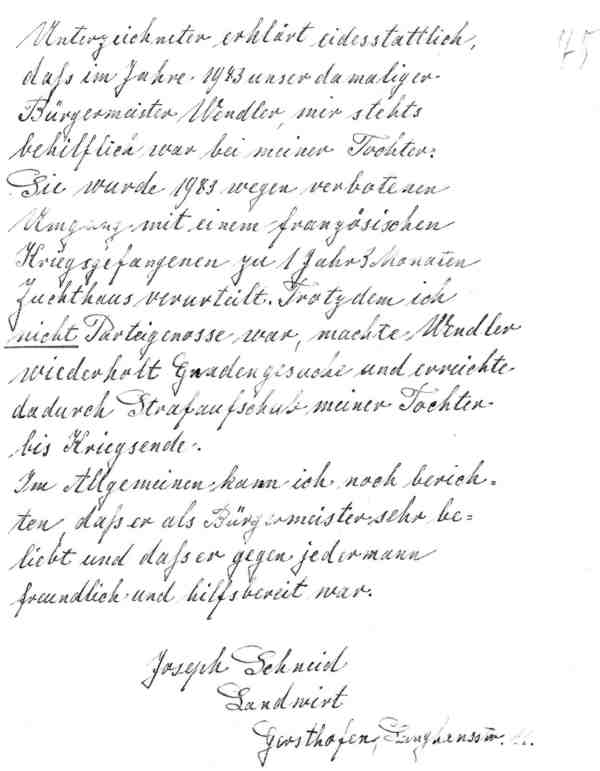 75
Unterzeichneter erklärt eidesstattlich,
daß im Jahre 1943 unser damaliger
Bürgermeister Wendler, mir stehts
behilflich war bei meiner Tochter.
Sie wurde 1943 wegen verbotenen
Umgang mit einem französischen
Kriegsgefangenen zu 1 Jahr 3 Monaten
Zuchthaus verurteilt. Trotzdem ich
nicht Parteigenosse war, machte Wendler
wiederholt Gnadengesuche und erreichte
dadurch Strafaufschub meiner Tochter
bis Kriegsende.
Im Allgemeinen kann ich noch berich=
ten, daß er als Bürgermeister sehr be=
liebt und daß er gegen jedermann
freundlich und hilfsbereit war.
Joseph Schneid
Landwirt
Gersthofen,